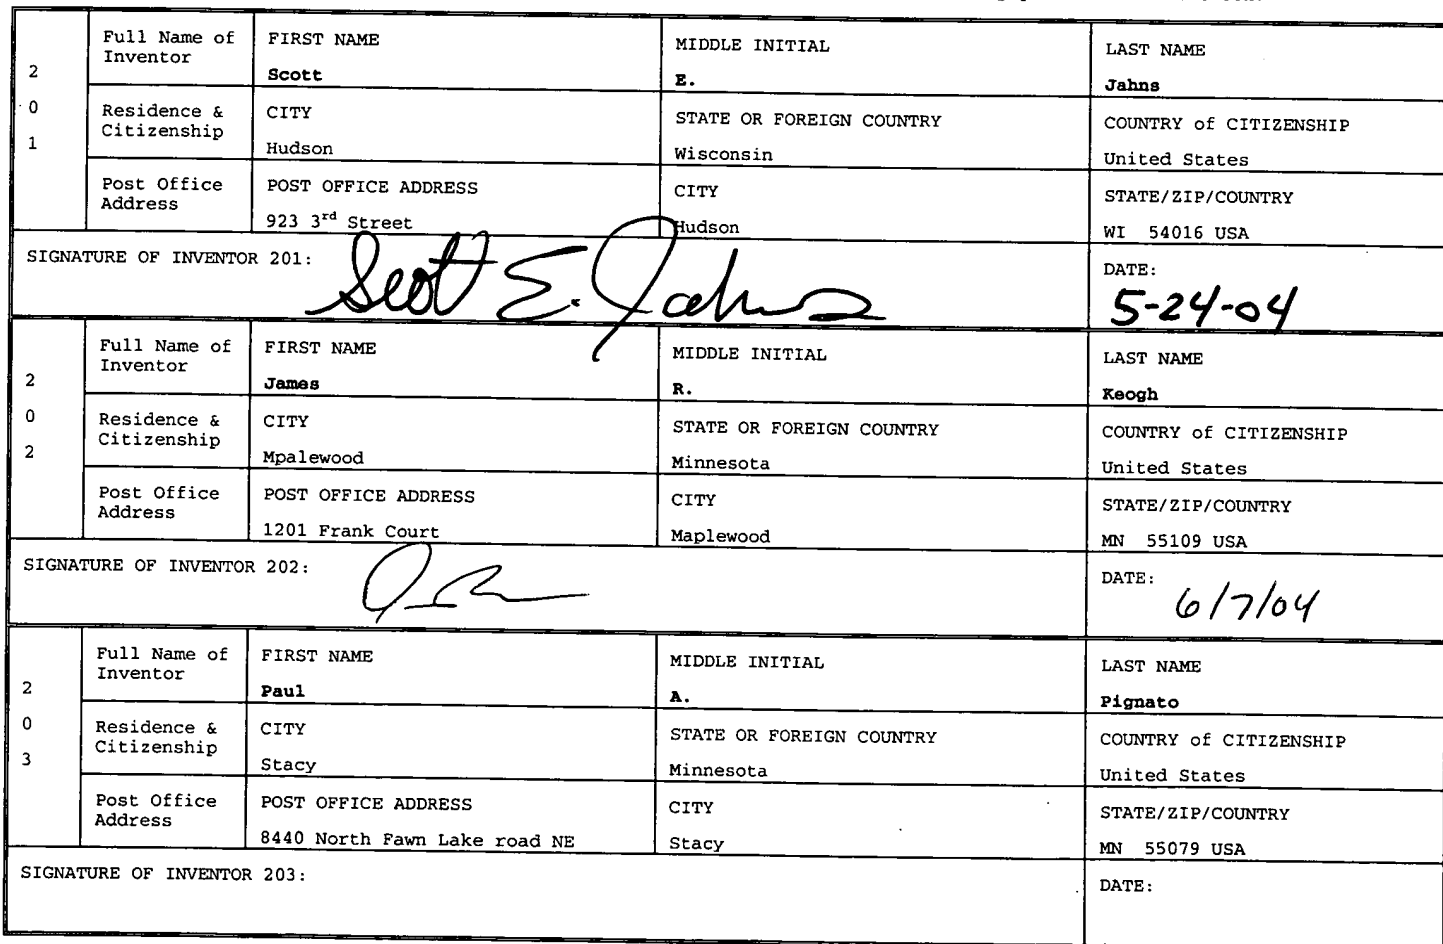 2
0
1
Full Name of Inventor
FIRST NAME
Scott
MIDDLE INITIAL
E.
LAST NAME
Jahns
Residence & Citizenship
CITY
Hudson
STATE OR FOREIGN COUNTRY
Wisconsin
COUNTRY of CITIZENSHIP
United States
Post Office Address
POST OFFICE ADDRESS
923 3rd Street
CITY
Hudson
STATE/ZIP/COUNTRY
WI 54016 USA
SIGNATURE OF INVENTOR 201:
Scott E. Jahns
DATE:
5-24-04
2
0
2
Full Name of Inventor
FIRST NAME
James
MIDDLE INITIAL
R.
LAST NAME
Keogh
Residence & Citizenship
CITY
Mpalewood
STATE OR FOREIGN COUNTRY
Minnesota
COUNTRY of CITIZENSHIP
United States
Post Office Address
POST OFFICE ADDRESS
1201 Frank Court
CITY
Maplewood
STATE/ZIP/COUNTRY
MN 55109 USA
SIGNATURE OF INVENTOR 202:
DATE:
6/7/04
2
0
3
Full Name of Inventor
FIRST NAME
Paul
MIDDLE INITIAL
A.
LAST NAME
Pignato
Residence & Citizenship
CITY
Stacy
STATE OR FOREIGN COUNTRY
Minnesota
COUNTRY of CITIZENSHIP
United States
Post Office Address
POST OFFICE ADDRESS
8440 North Fawn Lake road NE
CITY
Stacy
STATE/ZIP/COUNTRY
MN 55079 USA
SIGNATURE OF INVENTOR 203:
DATE: